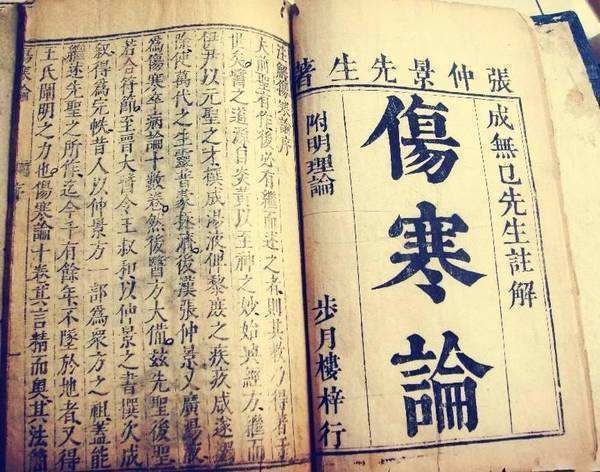 張仲景先生著
成無已先生註解
傷寒論
附明理論
步月樓梓行
注解傷寒論序
夫前聖有作後必有繼而述之者則其教乃得著于
世矣醫之道源自炎黃以至神之妙始興經方繼而
伊尹以元聖之才撰成湯液俾黎庶之疾疢咸遂蠲
除使萬代之生靈普蒙拯濟後漢張仲景又廣湯液
為傷寒卒病論十數卷然後醫方大備茲先聖後聖
若合符節至晉太醫令王叔和以仲景之書撰次成
叙得為完帙昔人以仲景方一部為眾方之祖蓋能
繼述先聖之所作迄今千有餘年不墜於地者又得
王氏闡明之力也傷寒論十卷其言精而奧其法簡
傷寒論 序